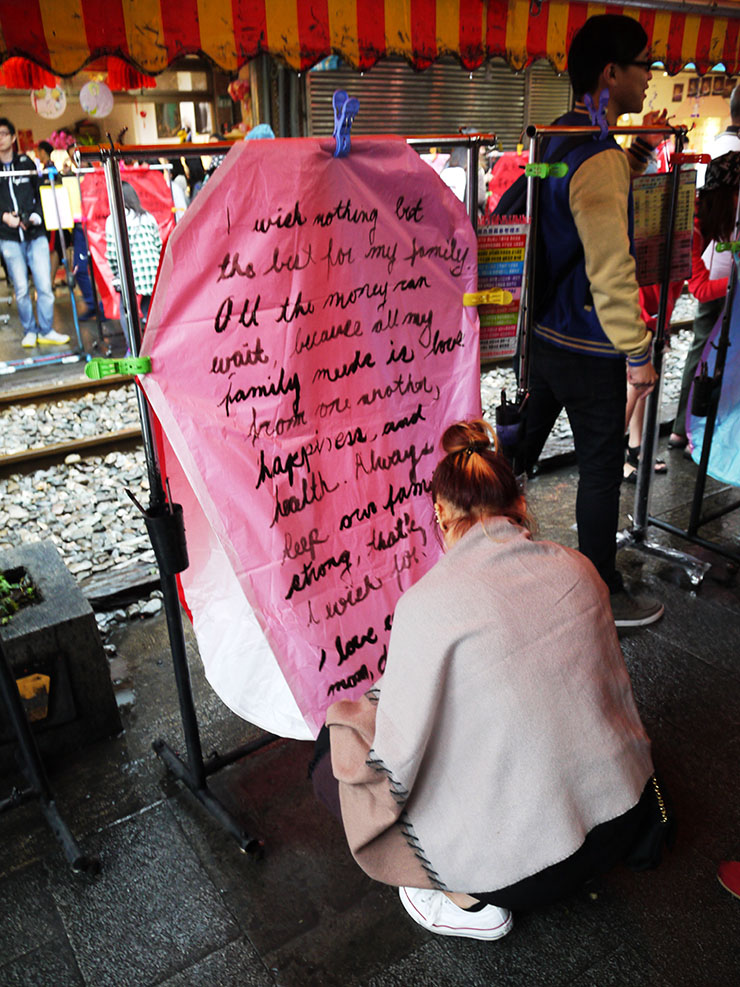 I wish nothing but
the best for my family.
All the money can
wait, because all my
family needs is love
from one another,
happiness, and
health. Always
keep our fam
strong, that's
I wish for.
I love
mom, d